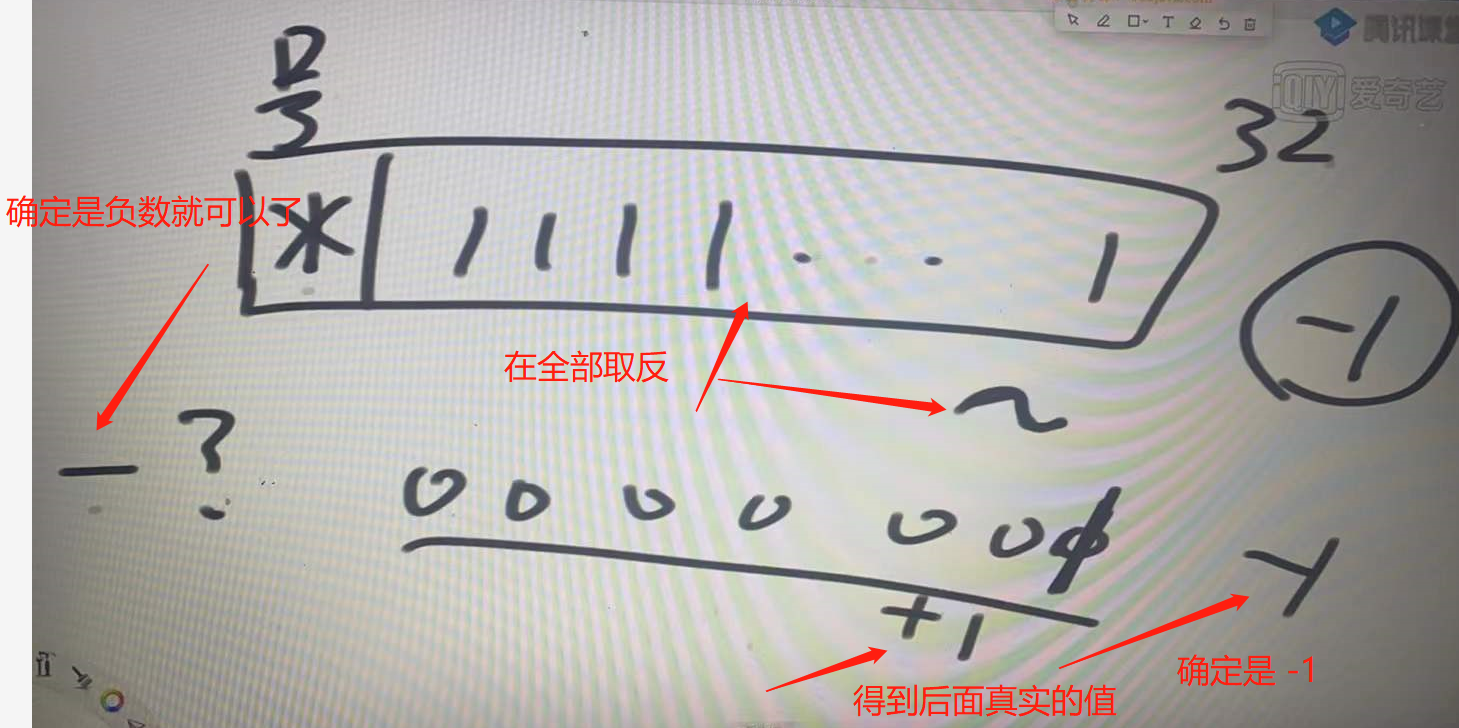 腾讯课堂
QIYI 爱奇艺
32
确定是负数就可以了
* 1 1 1 1 . . . 1
-1
在全部取反
~
- ?
0 0 0 0 0 0 0
+1
-1
得到后面真实的值
确定是 -1